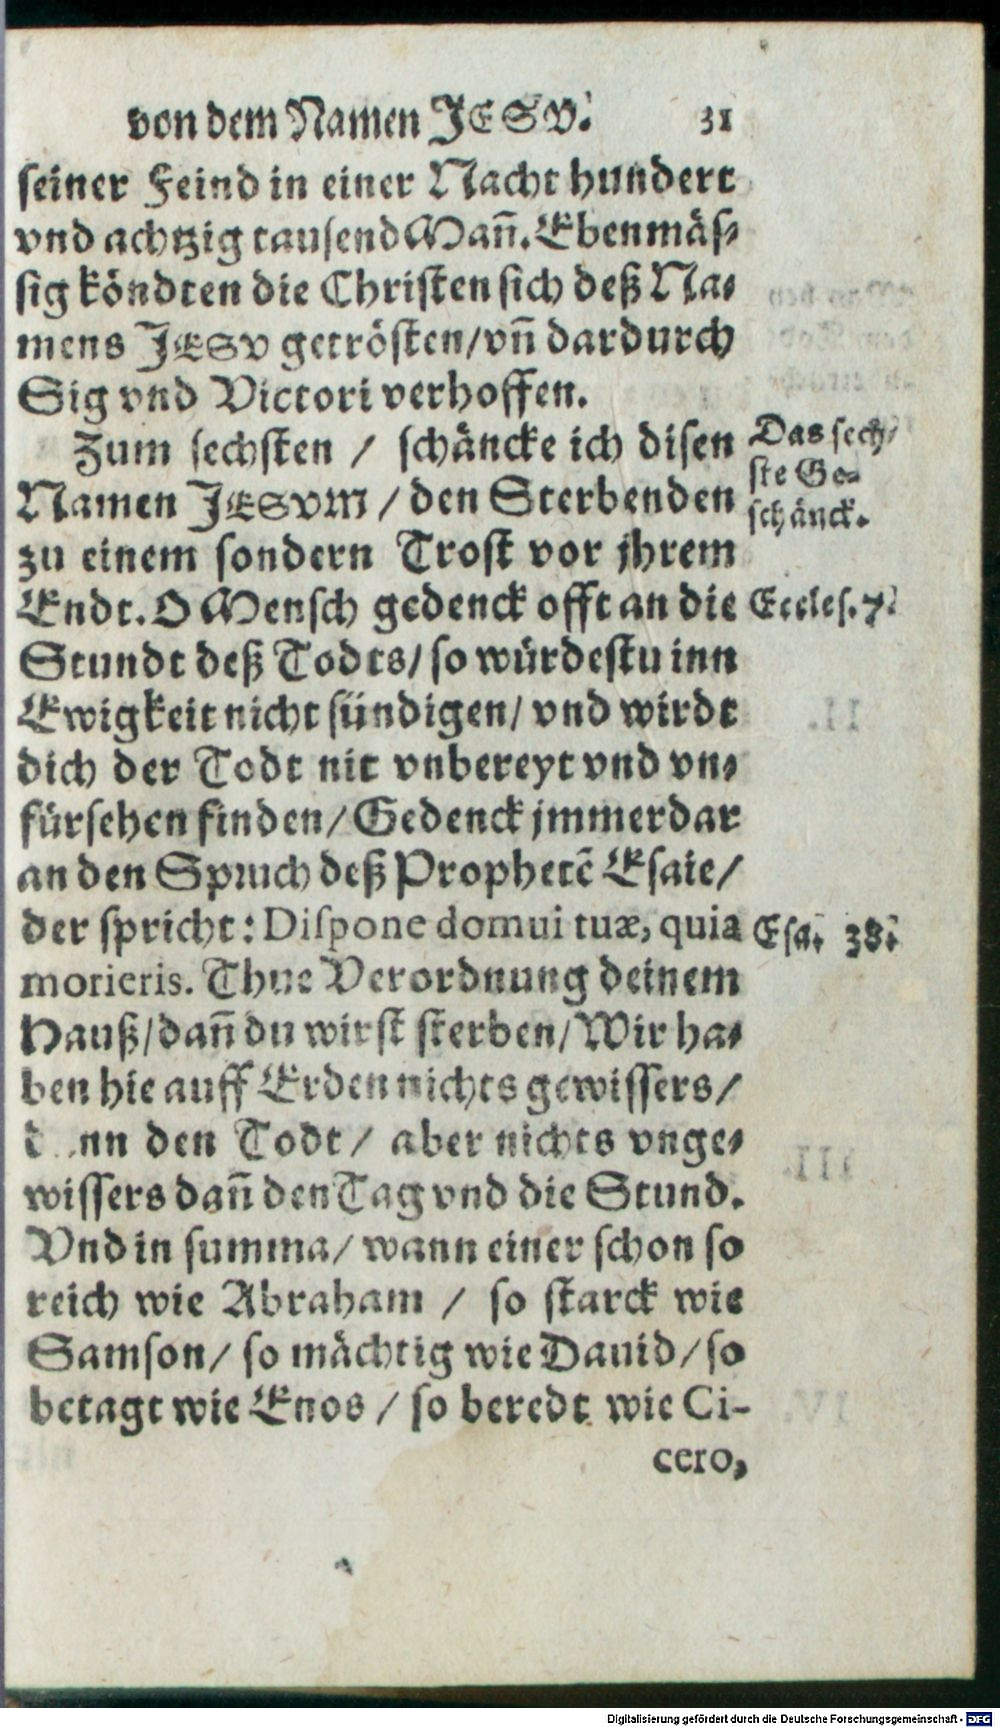 von dem Namen JESV. 31
seiner Feind in einer Nacht hundert
vnd achtzig tausend Mañ. Ebenmäs-
sig köndten die Christen sich deß Na-
mens JESV getrösten/ vñ dardurch
Sig vnd Victori verhoffen.
Zum sechsten / schäncke ich disen
Das sech-
ste Ge-
schänck.
Namen JESVM / den Sterbenden
zu einem sondern Trost vor jhrem
Endt. O Mensch gedenck offt an die
Eccles. 7.
Stundt deß Todts/ so würdestu inn
Ewigkeit nicht sündigen/ vnd wirdt
dich der Todt nit vnbereyt vnd vn-
fürsehen finden/ Gedenck jmmerdar
an den Spruch deß Prophetẽ Esaie/
der spricht: Dispone domui tuæ, quia
Esa. 38.
morieris. Thue Verordnung deinem
Hauß/ dañ du wirst sterben/ Wir ha-
ben hie auff Erden nichts gewissers/
d nn den Todt/ aber nichts vnge-
wissers dañ den Tag vnd die Stund.
Vnd in summa/ wann einer schon so
reich wie Abraham / so starck wie
Samson/ so mächtig wie Dauid/ so
betagt wie Enos / so beredt wie Ci-
cero,
Digitalisierung gefördert durch die Deutsche Forschungsgemeinschaft - DFG